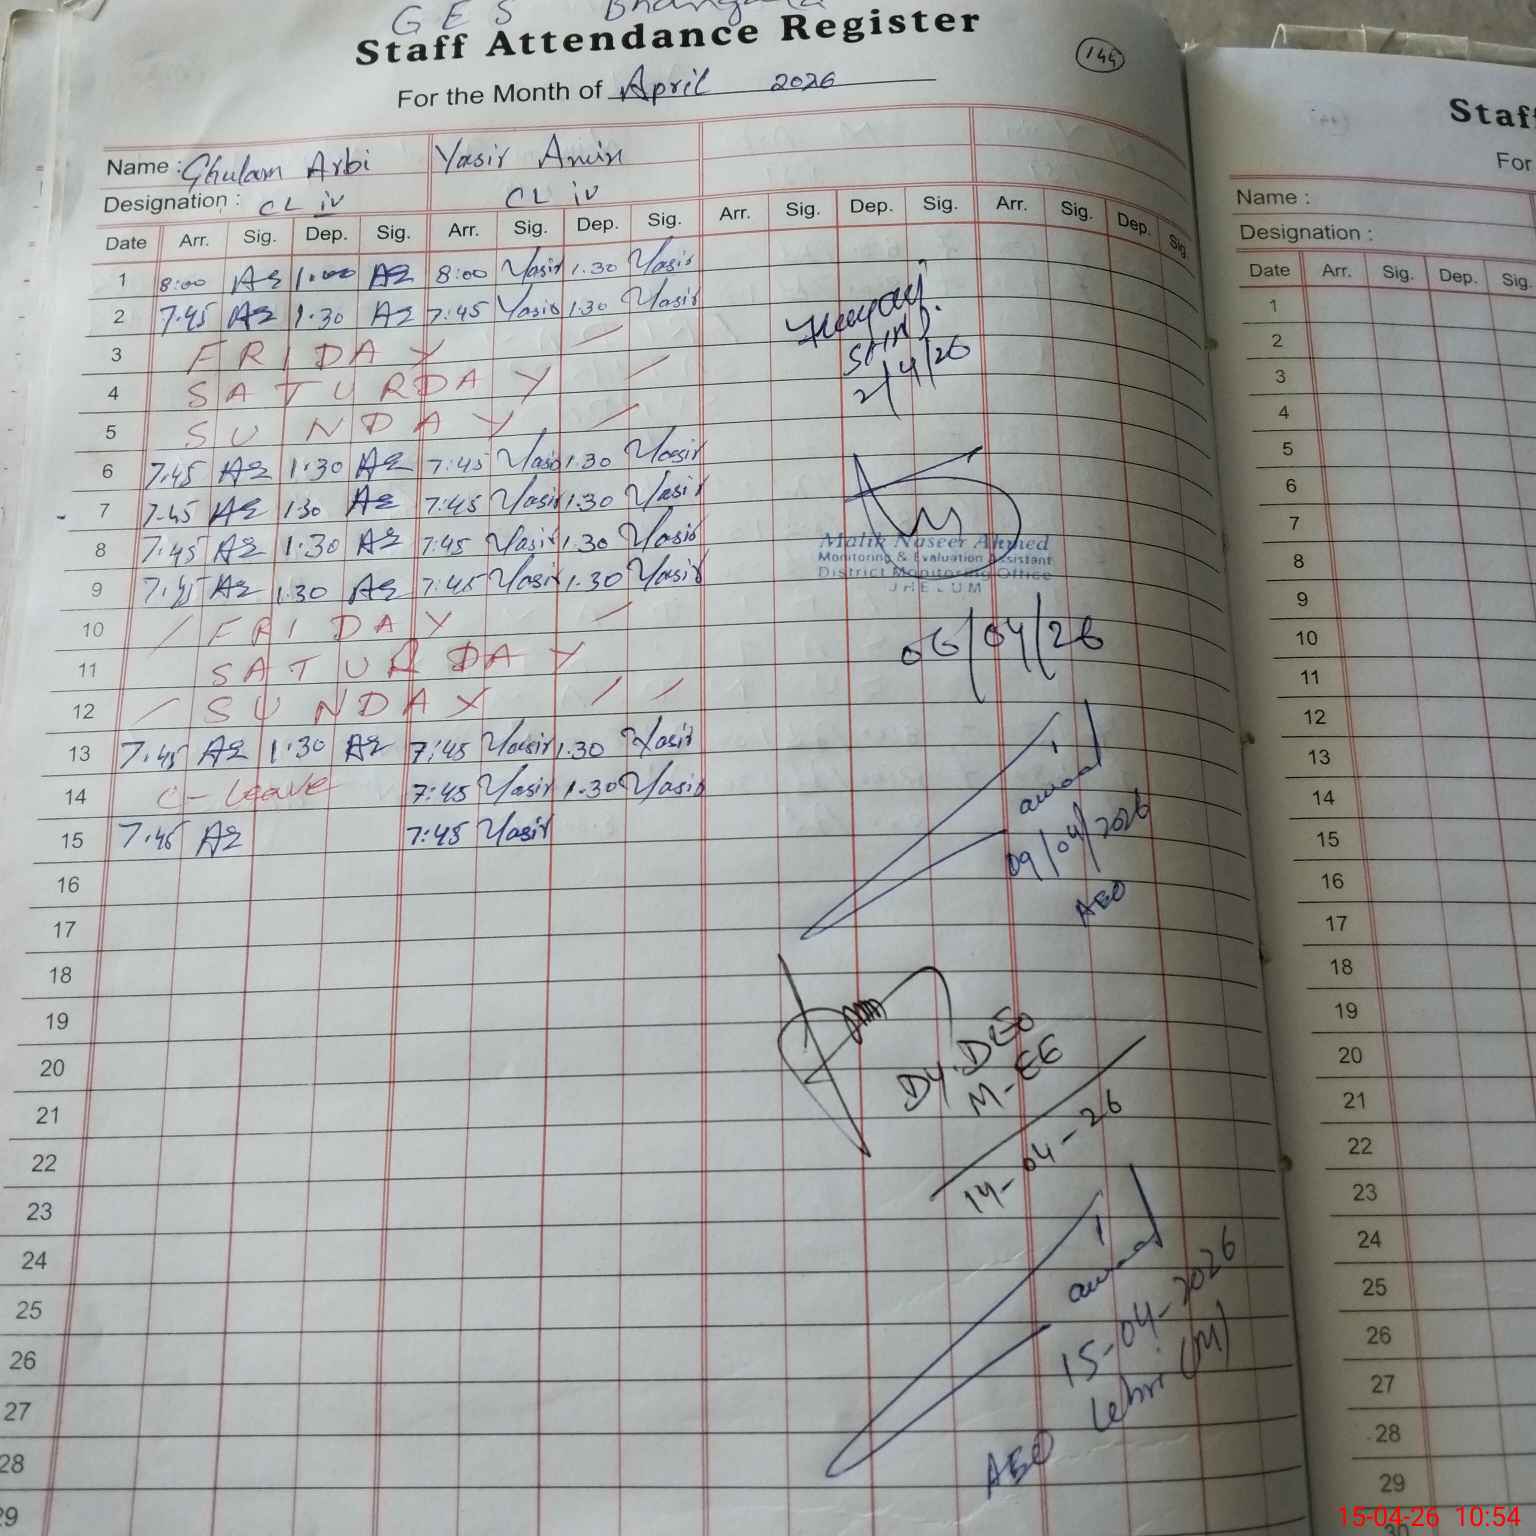 G E S
Staff Attendance Register
144
For the Month of April 2026
Name : Ghulam Arbi Yasir Amin
Designation : CL iv CL iv
Date Arr. Sig. Dep. Sig. Arr. Sig. Dep. Sig. Arr. Sig. Dep. Sig. Arr. Sig. Dep. Sig
1 8:00 1:00 8:00 Yasir 1.30 Yasir
2 7.45 1.30 7:45 Yasir 1.30 Yasir
3 FRIDAY
4 SATURDAY
5 SUNDAY
6 7.45 1:30 7:45 Yasir 1.30 Yasir
7 7.45 1.30 7:45 Yasir 1.30 Yasir
8 7.45 1.30 7:45 Yasir 1.30 Yasir
9 7.45 1.30 7:45 Yasir 1.30 Yasir
10 FRIDAY
11 SATURDAY
12 SUNDAY
13 7.45 1.30 7:45 Yasir 1.30 Yasir
14 C-Leave 7:45 Yasir 1.30 Yasir
15 7.45 7:45 Yasir
16
17
18
19
20
21
22
23
24
25
26
27
28
29
2/4/26
Malik Naseer Ahmed
Monitoring & Evaluation Assistant
District Monitoring Office
JHELUM
06/04/26
09/04/2026
AEO
Dy. DEO
M-EE
14-04-26
15-04-2026
AEO Lehri (M)
Staf
For
Name :
Designation :
Date Arr. Sig. Dep. Sig.
1
2
3
4
5
6
7
8
9
10
11
12
13
14
15
16
17
18
19
20
21
22
23
24
25
26
27
28
29
30
15-04-26 10:54